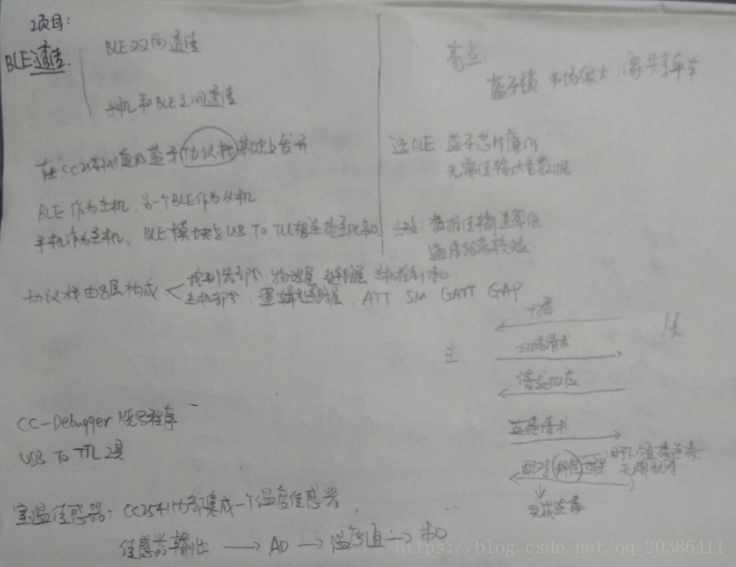 2项目:
BLE通信.
BLE双向通信
手机和BLE之间通信
在CC2541集成蓝牙协议栈基础上开
BLE作为主机, 另一个BLE作为从机
手机作为主机, BLE模块与USB To TLL相连接至PC
协议栈由8层构成
控制器部分 物理层 链路层 主机控制
主机部分 逻辑 层 ATT SM GATT GAP
CC-Debugger 程序
USB To TTL工具
室温传感器. CC2541内部集成一个温度传感器
传感器输出 → AD → 温度值 → 串口
亮点
蓝牙锁 市场很大
选BLE 蓝牙芯片廉价
无需传输大量数据
数据传输速率低
通信距离较短
主
从
广播
扫描请求
请求回应
连接请求
配对
完成连接
https://blog.csdn.net/qq_20386411